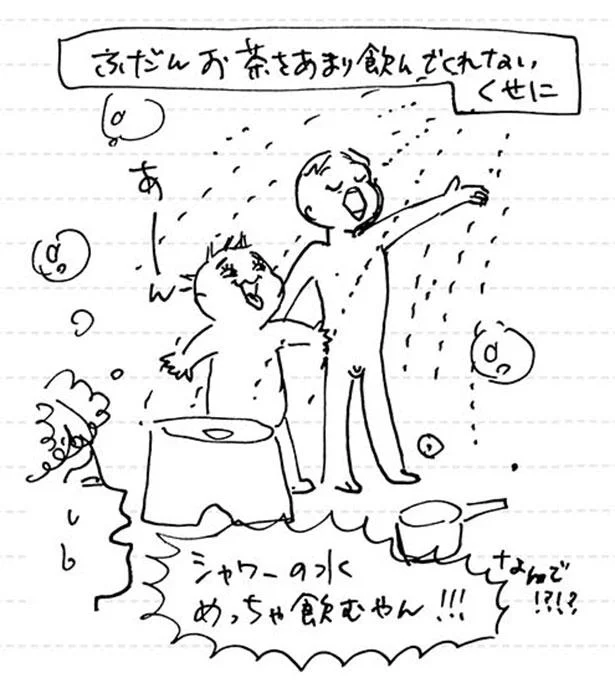 ふだんお茶をあまり飲んでくれない
くせに
あーん
シャワーの水
めっちゃ飲むやん!!!
なんで
!?!?